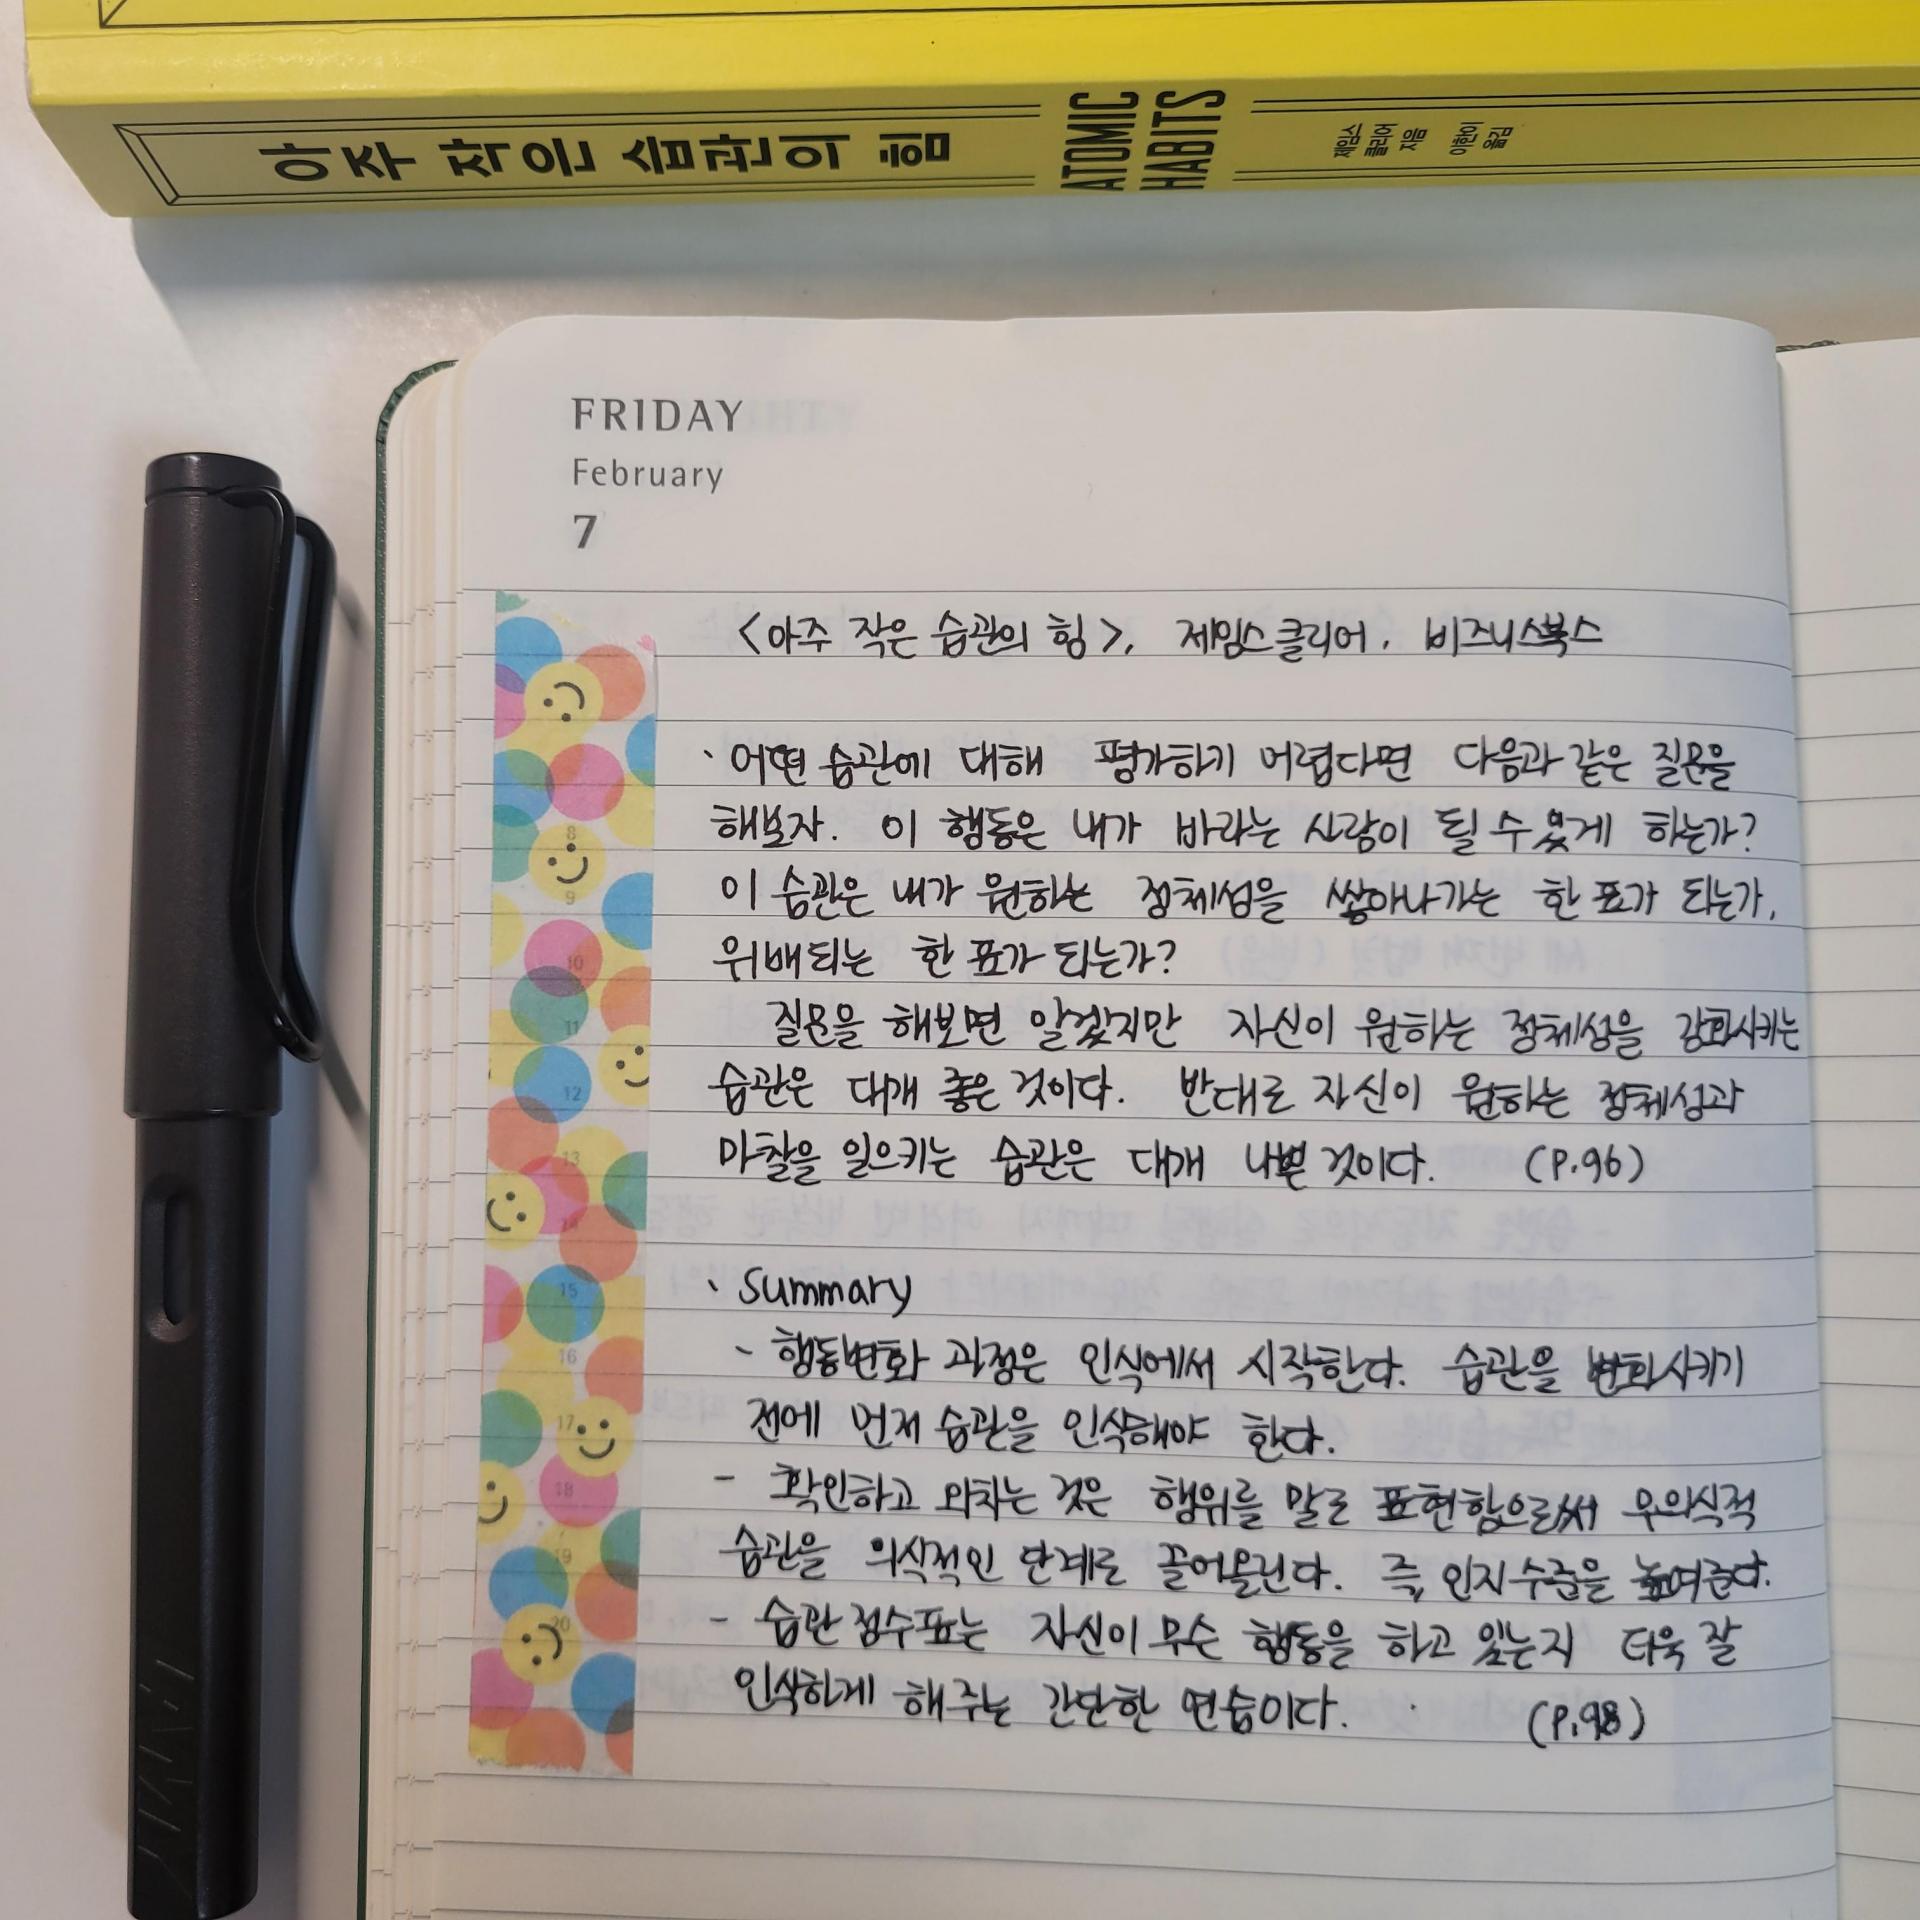 아주 작은 습관의 힘
ATOMIC
HABITS
제임스
클리어
지음
이한이
옮김
FRIDAY
February
7
<아주 작은 습관의 힘>, 제임스클리어, 비즈니스북스
· 어떤 습관에 대해 평가하기 어렵다면 다음과 같은 질문을
해보자. 이 행동은 내가 바라는 사람이 될 수 있게 하는가?
이 습관은 내가 원하는 정체성을 쌓아나가는 한 표가 되는가,
위배되는 한 표가 되는가?
질문을 해보면 알겠지만 자신이 원하는 정체성을 강화시키는
습관은 대개 좋은 것이다. 반대로 자신이 원하는 정체성과
마찰을 일으키는 습관은 대개 나쁜 것이다. (P.96)
· Summary
- 행동변화 과정은 인식에서 시작한다. 습관을 변화시키기
전에 먼저 습관을 인식해야 한다.
- 확인하고 외치는 것은 행위를 말로 표현함으로써 무의식적
습관을 의식적인 단계로 끌어올린다. 즉, 인지 수준을 높여준다.
- 습관 점수표는 자신이 무슨 행동을 하고 있는지 더욱 잘
인식하게 해주는 간단한 연습이다. (P.98)
8
9
10
11
12
13
14
15
16
17
18
19
20
LAMY